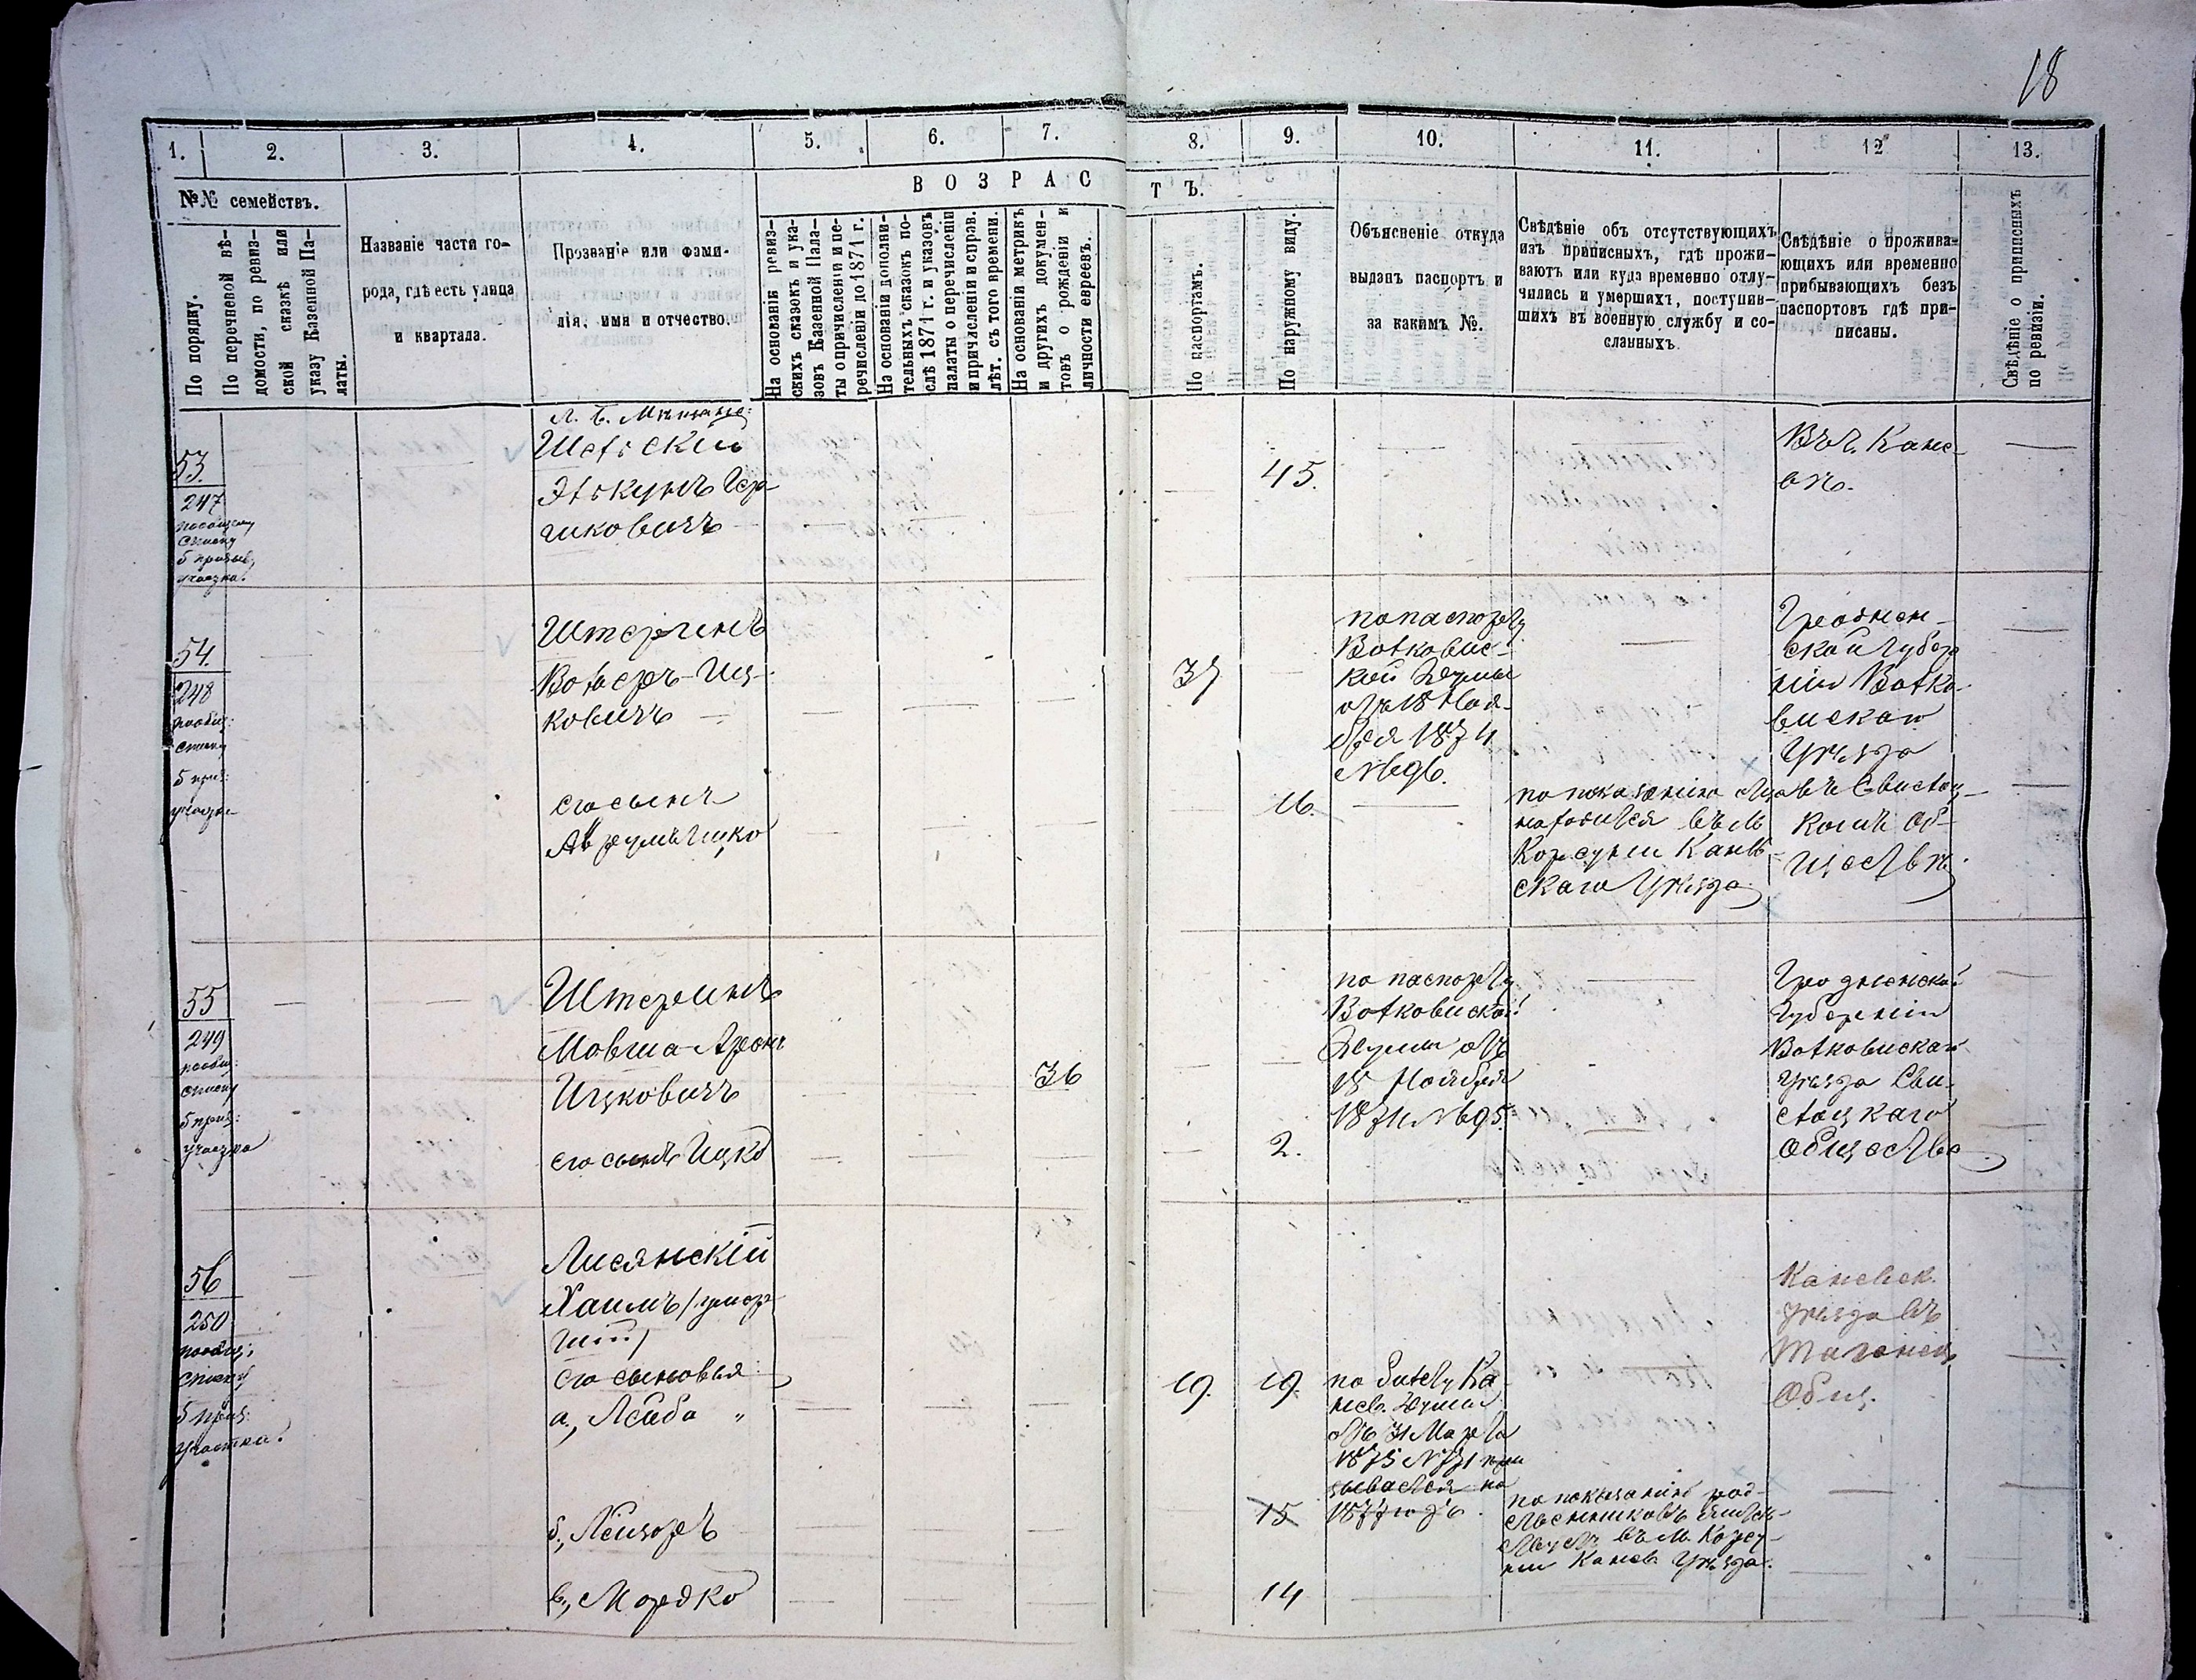 18
1. 2. 3. 4. 5. 6. 7. 8. 9. 10. 11. 12 13.
№№ семействъ.
По порядку.
По перечневой вѣ-
домости, по ревиз-
ской сказкѣ или
указу Казенной Па-
латы.
Названіе части го-
рода, гдѣ есть улица
и квартала.
Прозваніе или фами-
лія, имя и отчество.
ВОЗРАСТЪ.
На основаніи ревиз-
скихъ сказокъ и ука-
зовъ Казенной Пала-
ты о причисленіи и пе-
речисленіи до 1871 г.
На основаніи дополни-
тельныхъ сказокъ по-
слѣ 1871 г. и указовъ
палаты о перечисленіи
и причисленіи и справ.
лѣт. съ того времени.
На основаніи метрикъ
и другихъ докумен-
товъ о рожденіи и
личности евреевъ.
По паспортамъ.
По наружному виду.
Объясненіе откуда
выданъ паспортъ и
за какимъ №.
Свѣдѣніе объ отсутствующихъ
изъ приписныхъ, гдѣ прожи-
ваютъ или куда временно отлу-
чились и умершихъ, поступив-
шихъ въ военную службу и со-
сланныхъ.
Свѣдѣніе о прожива-
ющихъ или временно
прибывающихъ безъ
паспортовъ гдѣ при-
писаны.
Свѣдѣніе о приписныхъ
по ревизіи.
53.
247
списку
5 призыв.
участка.
гиковичъ
45.
Въ г. Кане-
вѣ.
54.
248
пообщ:
списку
5 приз:
участка
Штеринъ
Вольеръ-Иц-
ковичъ
37
по паспорту
Волковис-
кой Думы
отъ 18 Ноя-
бря 1874
№ 96.
Гроднен-
ской Губер
ніи Волко-
вискаго
Уѣзда
въ Свислоц-
комъ Об-
ществѣ.
его сынъ
Аврумъ Ицко
16.
по показанію отца
находится въ м
Корсуни Канев-
скаго Уѣзда
55
249
пообщ:
списку
5 приз:
участка
Штеринъ
Мовша-Аронъ
Ицковичъ
36
по паспорту
Волковиской
Думы отъ
18 Ноября
1874 № 95.
Гродненской
Губерніи
Волковискаго
уѣзда Сви-
слоцкаго
Общества
его сынъ Ицко
2.
56
250
пообщ:
списку
5 приз:
участка.
Лисянскій
Хаимъ / умер-
шій /
его сыновья:
а, Лейба "
19. 19.
по билету Ка-
нев. Думы
31 Марта
1875 № 71 при
зывается на
1877 годъ.
Каневск.
уѣзда въ
Общ.
б, Лейзоръ
15
по показанію род-
ственниковъ
въ м. Корсу-
ни Канев. Уѣзда.
в, Мордко
14